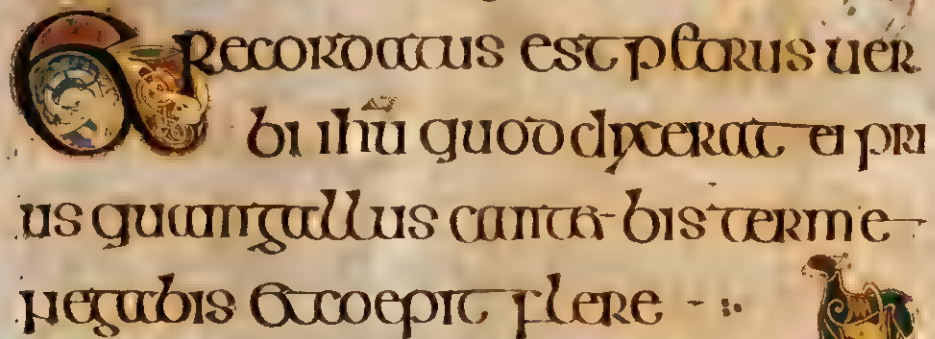 Et Recordatus est petrus uer
bi ihu quod dixerat ei pri
us quam gallus cantet bis ter me
negabis Et coepit flere